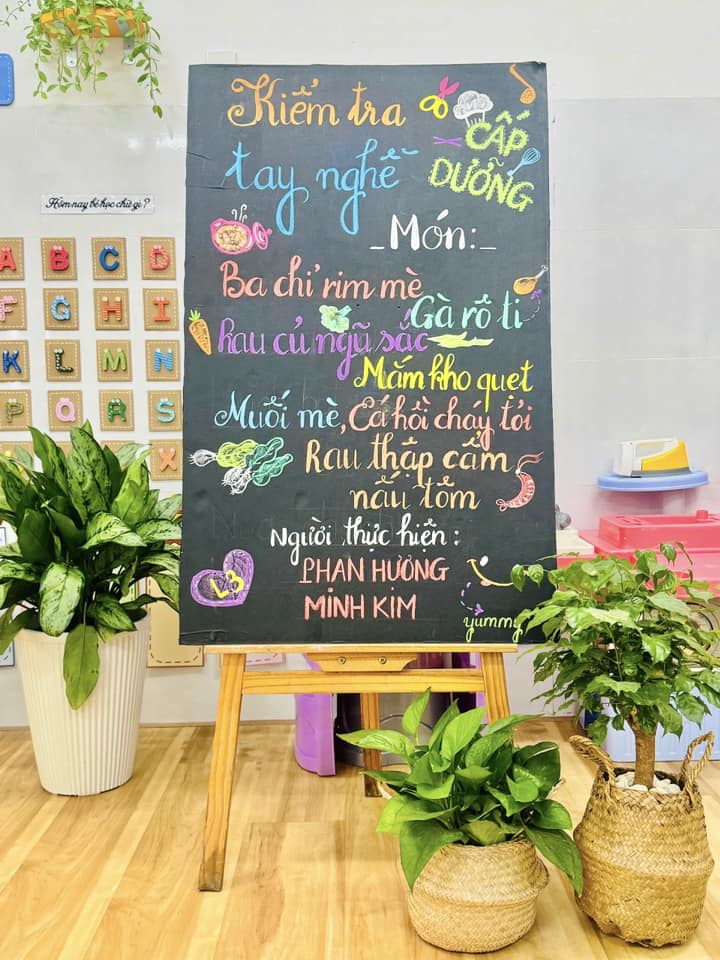 Kiểm tra
tay nghề
CẤP
DƯỠNG
_Món:_
Ba chỉ rim mè
Gà rô ti
Rau củ ngũ sắc
Mắm kho quẹt
Muối mè, Cá hồi cháy tỏi
Rau thập cẩm
nấu tôm
Người thực hiện:
PHAN HƯƠNG
MINH KIM
L3
yummy
Hôm nay bé học chữ gì?
A B C D
F G H I
K L M N
P Q R S
X